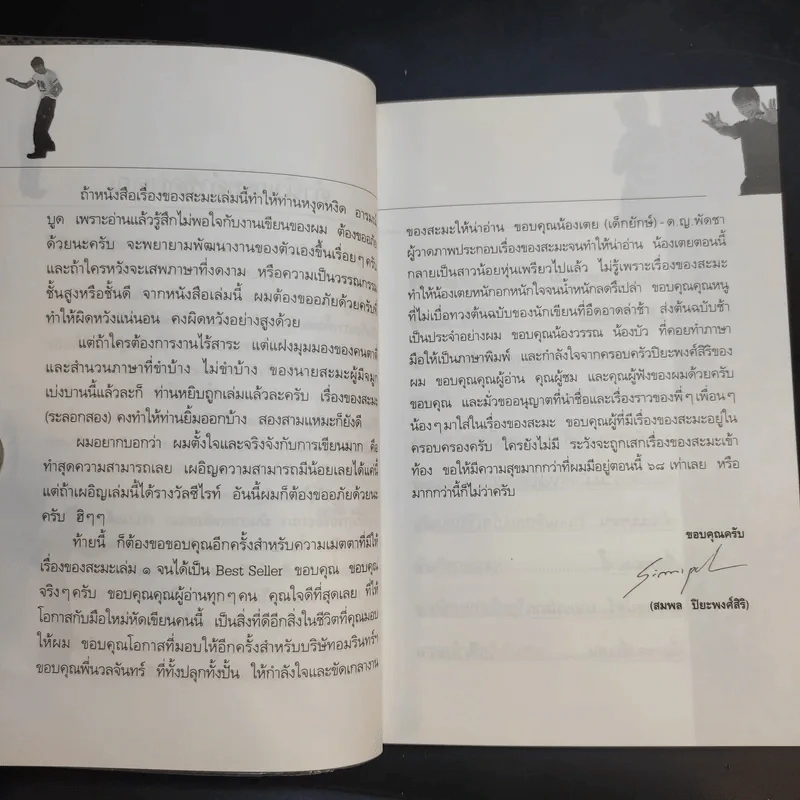 ถ้าหนังสือเรื่องของสะมะเล่มนี้ทำให้ท่านหงุดหงิด อารมณ์
บูด เพราะอ่านแล้วรู้สึกไม่พอใจกับงานเขียนของผม ต้องขออภัย
ด้วยนะครับ จะพยายามพัฒนางานของตัวเองขึ้นเรื่อยๆครับ
และถ้าใครหวังจะเสพภาษาที่งดงาม หรือความเป็นวรรณกรรม
ชั้นสูงหรือชั้นดี จากหนังสือเล่มนี้ ผมต้องขออภัยด้วยครับที่
ทำให้ผิดหวังแน่นอน คงผิดหวังอย่างสูงด้วย
แต่ถ้าใครต้องการงานไร้สาระ แต่แฝงมุมมองของคนตาตี่
และสำนวนภาษาที่ขำบ้าง ไม่ขำบ้าง ของนายสะมะผู้มีจมูก
เบ่งบานนี้แล้วละก็ ท่านหยิบถูกเล่มแล้วละครับ เรื่องของสะมะ
(ระลอกสอง) คงทำให้ท่านยิ้มออกบ้าง สองสามแหมะก็ยังดี
ผมอยากบอกว่า ผมตั้งใจและจริงจังกับการเขียนมาก คือ
ทำสุดความสามารถเลย เผอิญความสามารถมีน้อยเลยได้แค่นี้
แต่ถ้าเผอิญเล่มนี้ได้รางวัลซีไรท์ อันนี้ผมก็ต้องขออภัยด้วยนะ
ครับ ฮิๆๆ
ท้ายนี้ ก็ต้องขอขอบคุณอีกครั้งสำหรับความเมตตาที่มีให้
เรื่องของสะมะเล่ม ๑ จนได้เป็น Best Seller ขอบคุณ ขอบคุณ
จริงๆครับ ขอบคุณคุณผู้อ่านทุกๆคน คุณใจดีที่สุดเลย ที่ให้
โอกาสกับมือใหม่หัดเขียนคนนี้ เป็นสิ่งที่ดีอีกสิ่งในชีวิตที่คุณมอบ
ให้ผม ขอบคุณโอกาสที่มอบให้อีกครั้งสำหรับบริษัทอมรินทร์ฯ
ขอบคุณพี่นวลจันทร์ ที่ทั้งปลุกทั้งปั้น ให้กำลังใจและขัดเกลางาน
ของสะมะให้น่าอ่าน ขอบคุณน้องเตย (เด็กยักษ์) - ด.ญ.พัดชา
ผู้วาดภาพประกอบเรื่องของสะมะจนทำให้น่าอ่าน น้องเตยตอนนี้
กลายเป็นสาวน้อยหุ่นเพรียวไปแล้ว ไม่รู้เพราะเรื่องของสะมะ
ทำให้น้องเตยหนักอกหนักใจจนน้ำหนักลดรึเปล่า ขอบคุณคุณหนู
ที่ไม่เบื่อทวงต้นฉบับของนักเขียนที่อืดอาดล่าช้า ส่งต้นฉบับช้า
เป็นประจำอย่างผม ขอบคุณน้องวรรณ น้องบัว ที่คอยทำภาษา
มือให้เป็นภาษาพิมพ์ และกำลังใจจากครอบครัวปิยะพงศ์สิริของ
ผม ขอบคุณคุณผู้อ่าน คุณผู้ชม และคุณผู้ฟังของผมด้วยครับ
ขอบคุณ และมั่วขออนุญาตที่นำชื่อและเรื่องราวของพี่ๆเพื่อนๆ
น้องๆมาใส่ในเรื่องของสะมะ ขอบคุณผู้ที่มีเรื่องของสะมะอยู่ใน
ครอบครองครับ ใครยังไม่มี ระวังจะถูกเสกเรื่องของสะมะเข้า
ท้อง ขอให้มีความสุขมากกว่าที่ผมมีอยู่ตอนนี้ ๖๘ เท่าเลย หรือ
มากกว่านี้ก็ไม่ว่าครับ
ขอบคุณครับ
(สมพล ปิยะพงศ์สิริ)